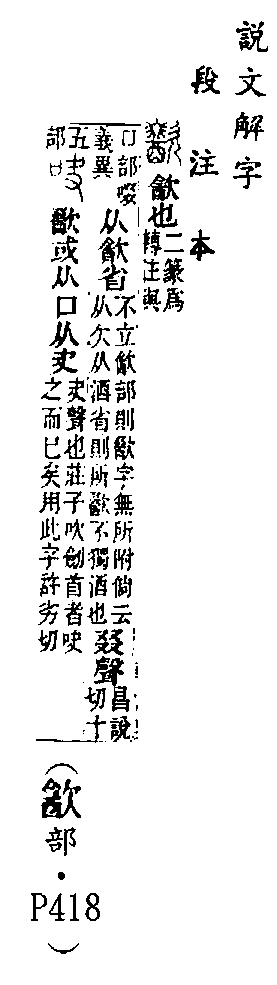 說文解字
段注本
㱃也二篆爲轉注與
口部啜義異从㱃省不立㱃部則歠字無所附倘云从欠从酒省則所歠不獨酒也叕聲昌說切十
五部歠或从口从夬夬聲也莊子吹劒首者吷之而已矣用此字許劣切
（㱃部・P418）